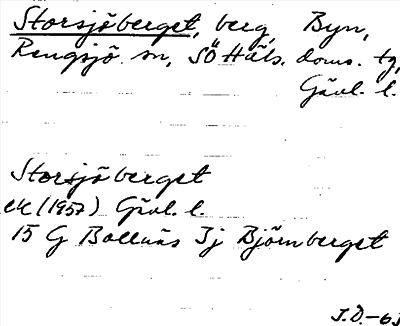 Storsjöberget, berg, Byn,
Rengsjö sn, SÖ Häls. doms. tg,
Gävl. l.
Storsjöberget
ek (1957) Gävl. l.
15 G Bollnäs 3j Björnberget
J.D.-63